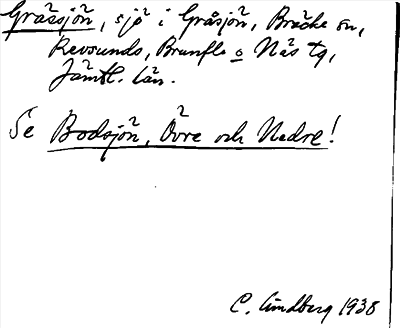 Gråssjön, sjö i Gråsjön, Bräcke sn,
Revsunds, Brunflo o Näs tg,
Jämtl. län.
Se Bodsjön, Övre och Nedre!
C. Lindberg 1938